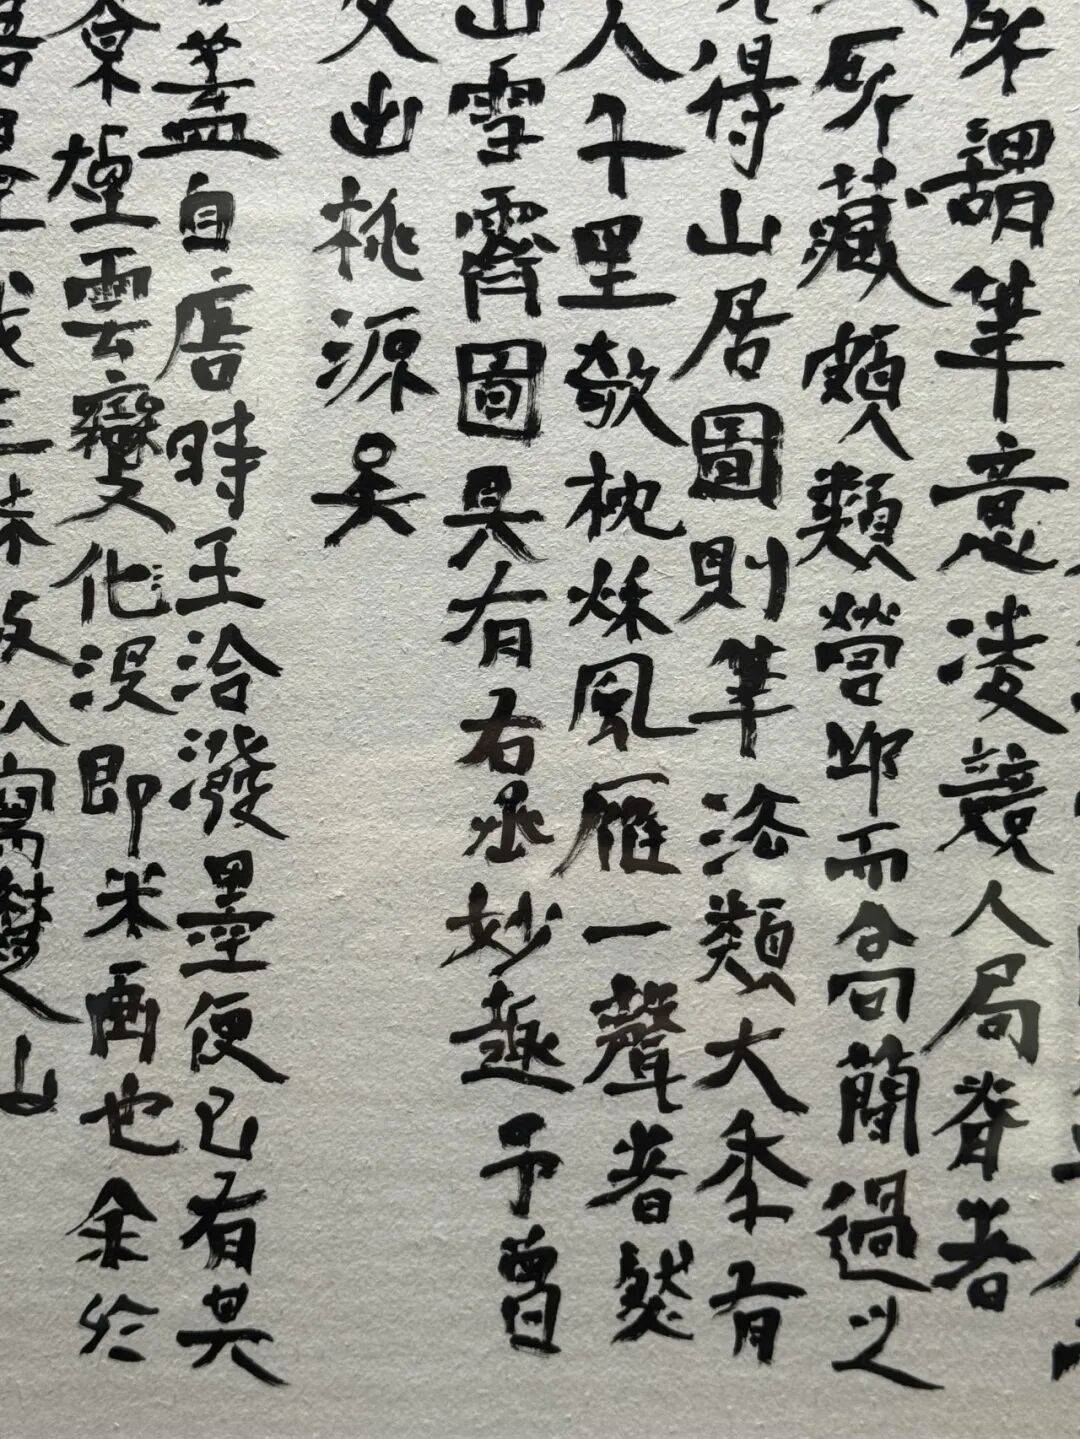 所謂筆意凌競人局脊者
所藏頗類營邱而高簡過之
得山居圖則筆法類大年有
人千里欹枕秋風雁一聲者然
山雪霽圖具有右丞妙趣予曾
又出桃源吴
蓋自唐時王洽潑墨便已有其
雲變化没即米画也余於